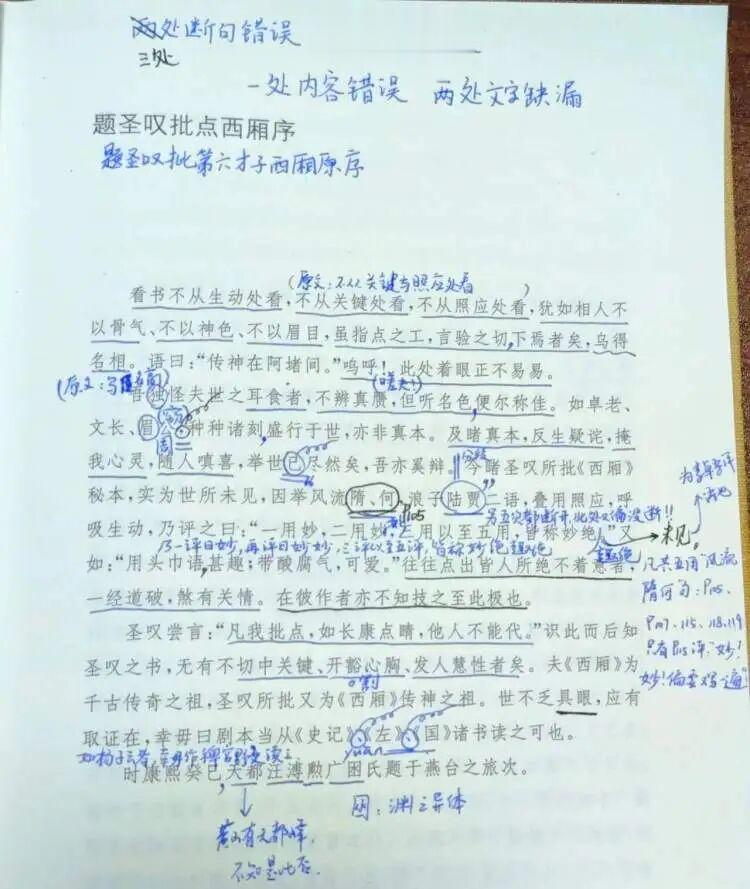 两处断句错误
三处
一处内容错误 两处文字缺漏
题圣叹批点西厢序
题圣叹批第六才子西厢原序
(原文:不从关键与照应处看)
看书不从生动处看,不从关键处看,不从照应处看,犹如相人不
以骨气、不以神色、不以眉目,虽指点之工,言验之切下焉者矣,乌得
名相。语曰:“传神在阿堵间。”呜呼!此处着眼正不易易。
吾独怪夫世之耳食者,不辨真赝,但听名色,便尔称佳。如卓老、
文长、眉公种种诸刻盛行于世,亦非真本。及睹真本,反生疑诧,掩
我心灵,随人嗔喜,举世已尽然矣,吾亦奚辩。今睹圣叹所批《西厢》
秘本,实为世所未见,因举风流隋、何,浪子陆贾二语,叠用照应,呼
P105
吸生动,乃评之曰:“一用妙,二用妙,三用以至五用,皆称妙绝。”又
如:“用头巾语甚趣;带酸腐气,可爱。”往往点出皆人所绝不着意者,
一经道破,煞有关情。在彼作者亦不知技之至此极也。
未见
凡共五用“风流
隋何”句:P105、
P107、115、118、119
只有P115评“妙!
圣叹尝言:“凡我批点,如长康点睛,他人不能代。”识此而后知
圣叹之书,无有不切中关键、开豁心胸、发人慧性者矣。夫《西厢》为
割
千古传奇之祖,圣叹所批又为《西厢》传神之祖。世不乏具眼,应有
取证在,幸毋曰剧本当从《史记》《左》《国》诸书读之可也。
yuan
时康熙癸巳天都汪溥勲广囦氏题于燕台之旅次。
囦:渊之异体
黄山有天都峰
不知是此否.